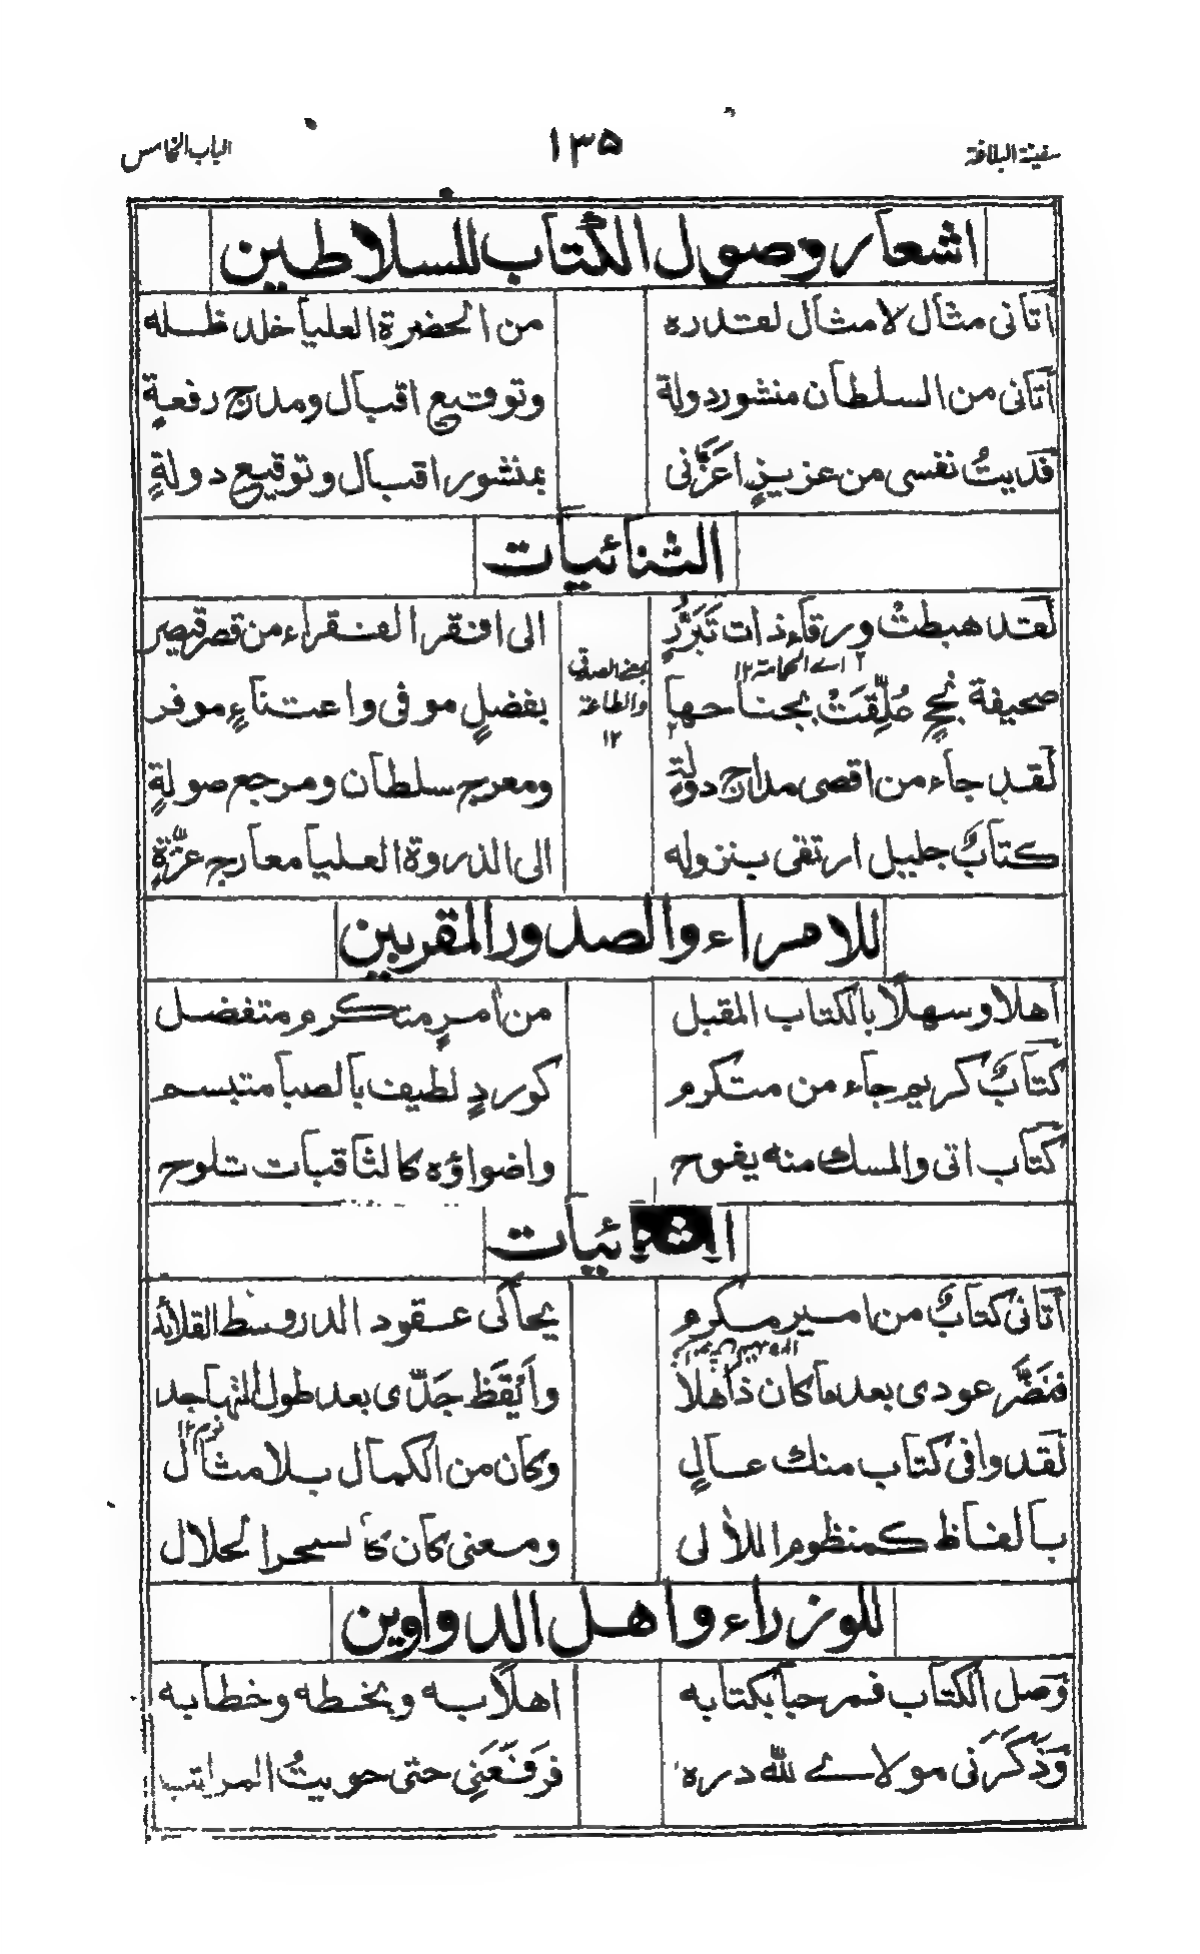 سفينة البلاغة ١٣٥ الباب الخامس
اشعار وصول الكتاب للسلاطين
اتانى مثال لامثال لقدره من الحضرة العليا خلد ظله
اتانى من السلطان منشور دولة وتوقيع اقبال ومدرج رفعةٍ
فديتُ نفسى من عزيزٍ اعَزَّنى بمنشور اقبال وتوقيع دولةٍ
الثنائيات
لقد هبطتْ ورقاء ذات تَبَرُّزٍ الى افقر الفقراء من قصر قيصر
٢ اے الحمامة ١٢
بعض الصدقى والطاعة ١٢
صحيفة نجحٍ عُلِّقَتْ بجناحها بفضلٍ موفى واعتناءٍ موفر
لقد جاء من اقصى مدارج دولةٍ ومعرج سلطان ومرجع صولةٍ
كتابٌ جليل ارتقى بنزوله الى الذروة العليا معارج عزّةٍ
للامراء والصدور المقربين
اهلا وسهلًا بالكتاب المقبل من امرٍ متكرم متفضل
كتابٌ كريم جاء من متكرم كوردٍ لطيف بالصبا متبسم
كتاب اتى والمسك منه يفوح واضواؤه كالثاقبات تلوح
الثنائيات
اتانى كتابٌ من امير مكرم يحاكى عقود الدر وسط القلائد
فنضَّر عودى بعد ما كان ذاهلًا وأيْقَظ جَدّى بعد طول التهاجد
نوم ١٢
لقد وافى كتاب منك عالٍ وكان من الكمال بلا مثال
بالفاظ كمنظوم اللألى ومعنى كان كالسحر الحلال
للوزراء واهل الدواوين
وصل الكتاب فمرحبا بكتابه اهلًا به وبخطه وخطابه
وَذَكَرَنى مولاے لله دره فرَفَعَنِى حتى حويتُ المراتب